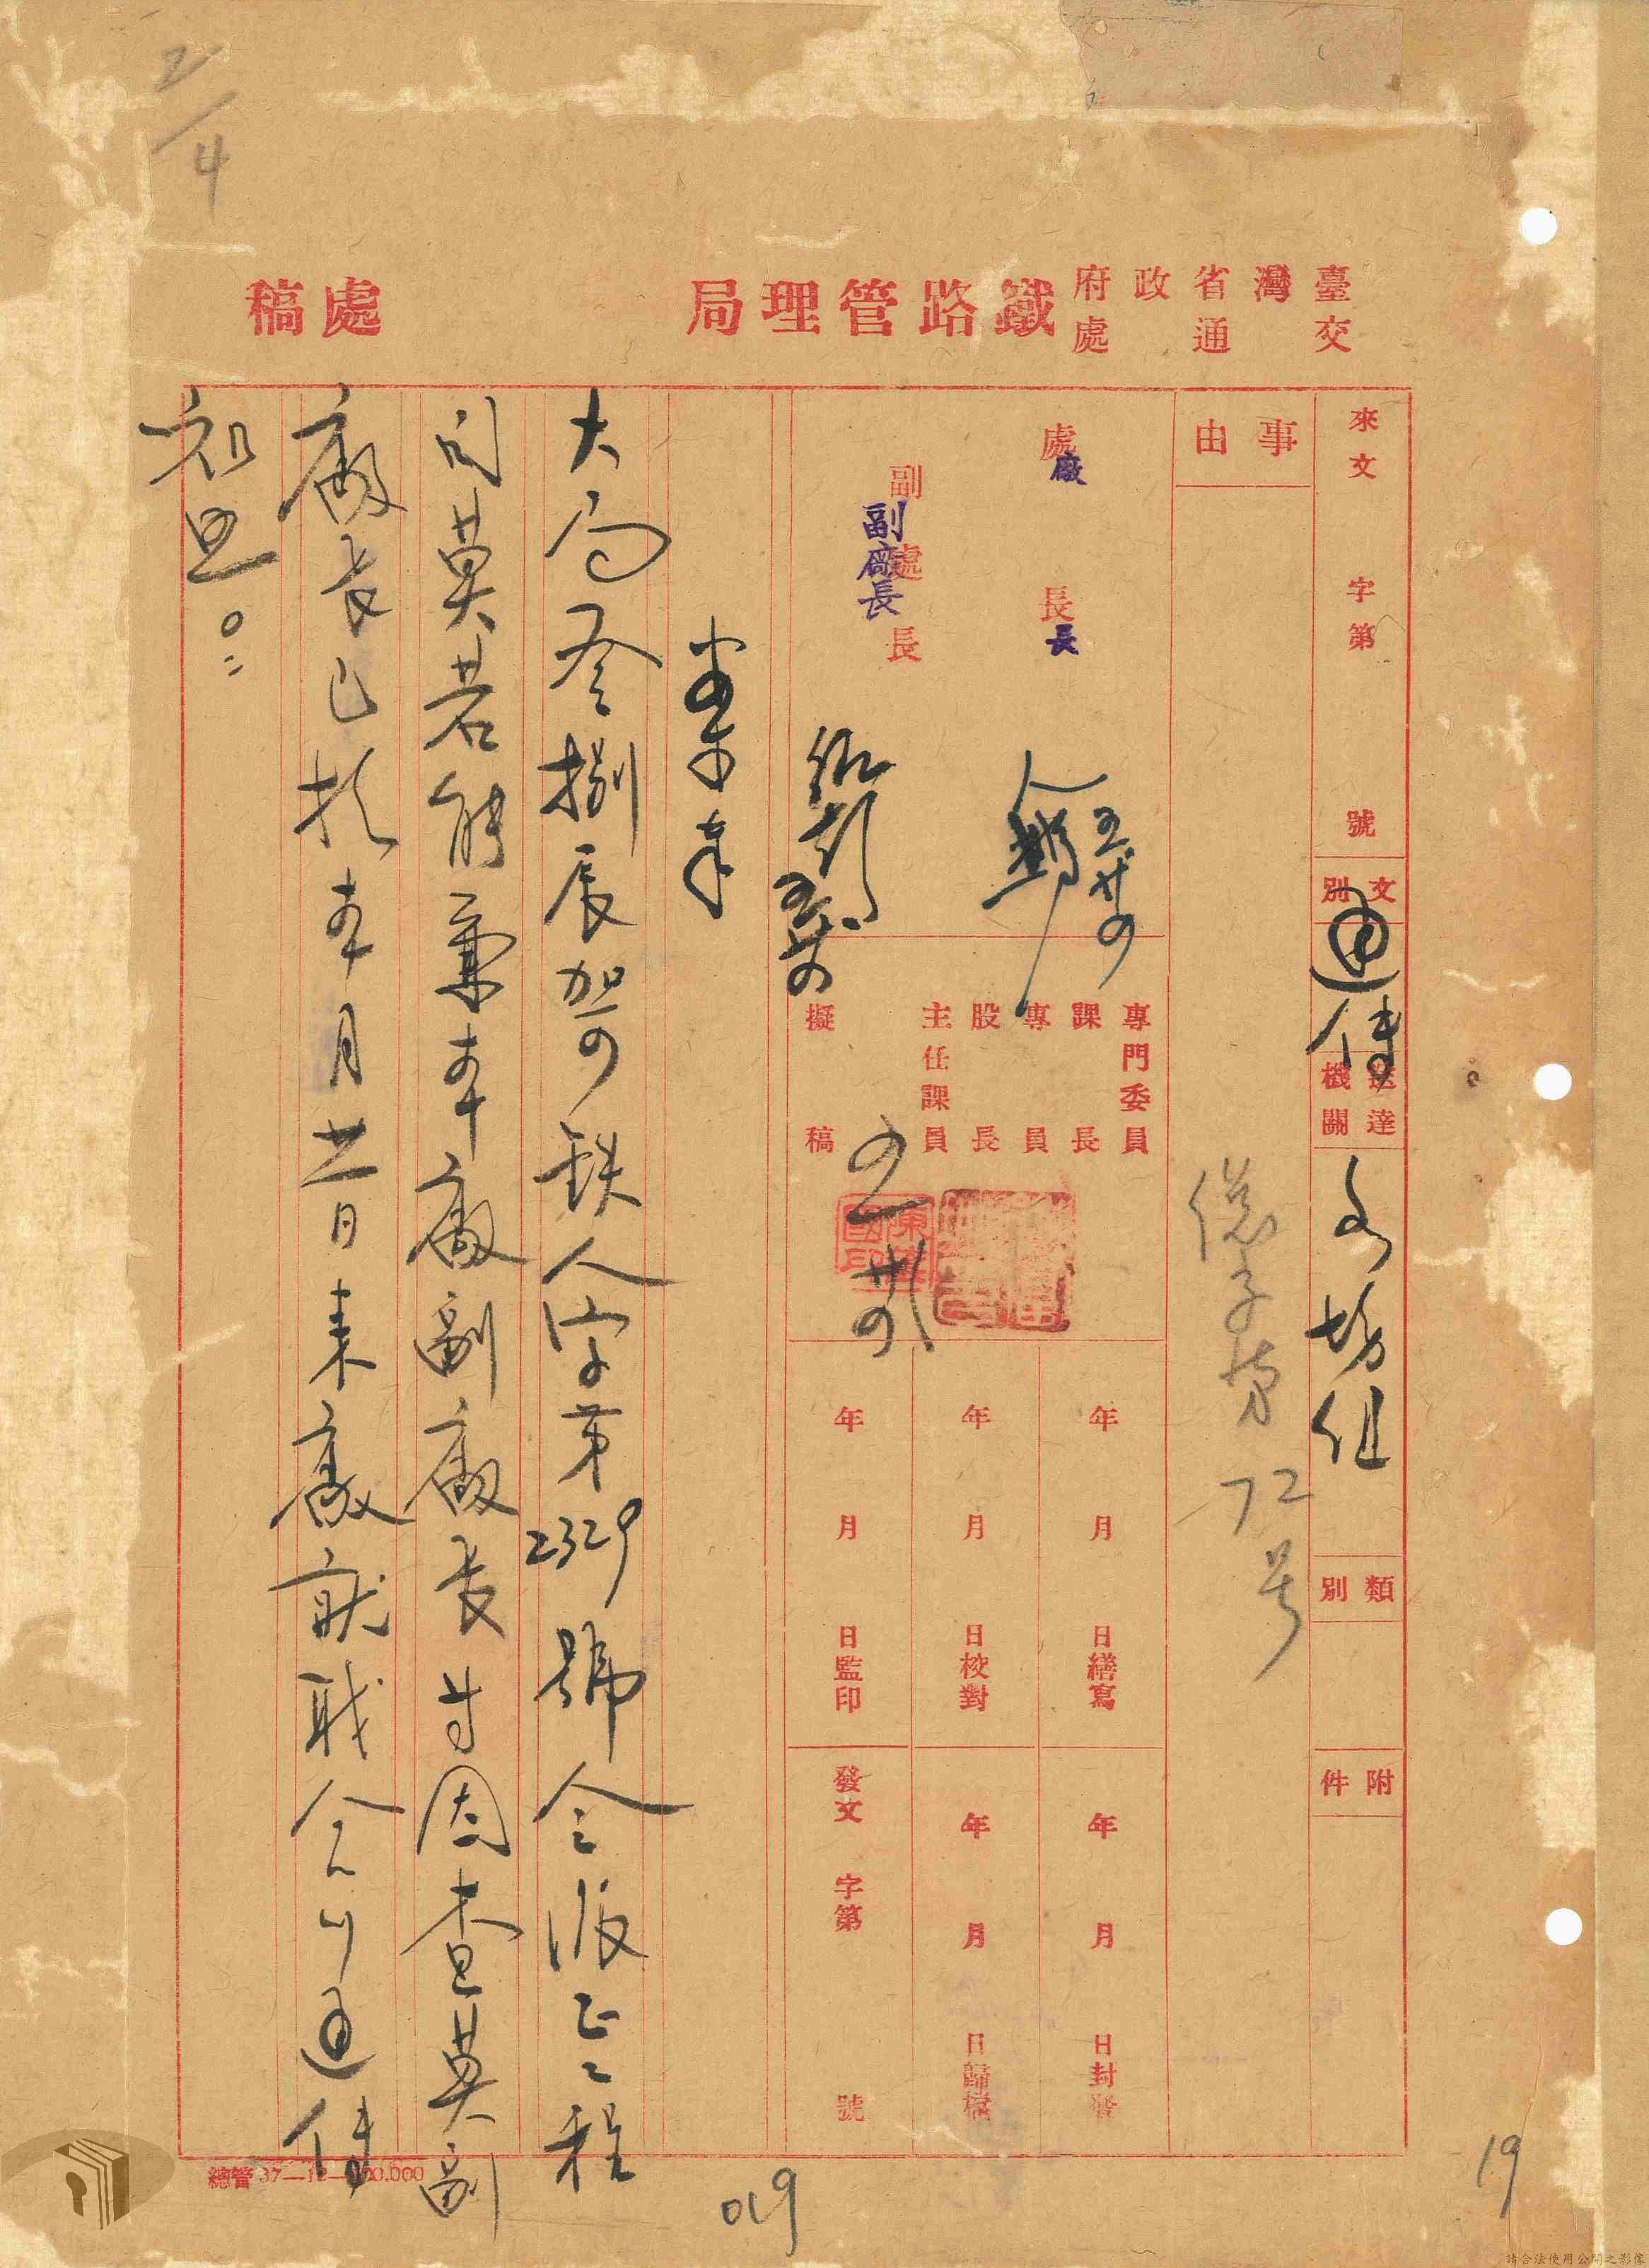 2/4
臺灣省政府
交通處
鐵路管理局
處稿
來文 字第 號
文別
通傳
送達機關
各場組
類別
附件
事由
總字第72号
處長
廠長
副處長
副廠長
五廿四
專門委員
課長
專員
股長
主任課員
擬稿
年 月 日繕寫
年 月 日校對
年 月 日監印
年 月 日封發
年 月 日歸檔
發文 字第 號
案奉
大局叁捌辰賀鉄人字第2329號令派正工程
司莫若能兼本廠副廠長等因查莫副
廠長已於本月廿日來廠就職合行通傳
知照。
總管 37—12—100.000
019
19
請合法使用公開之影像